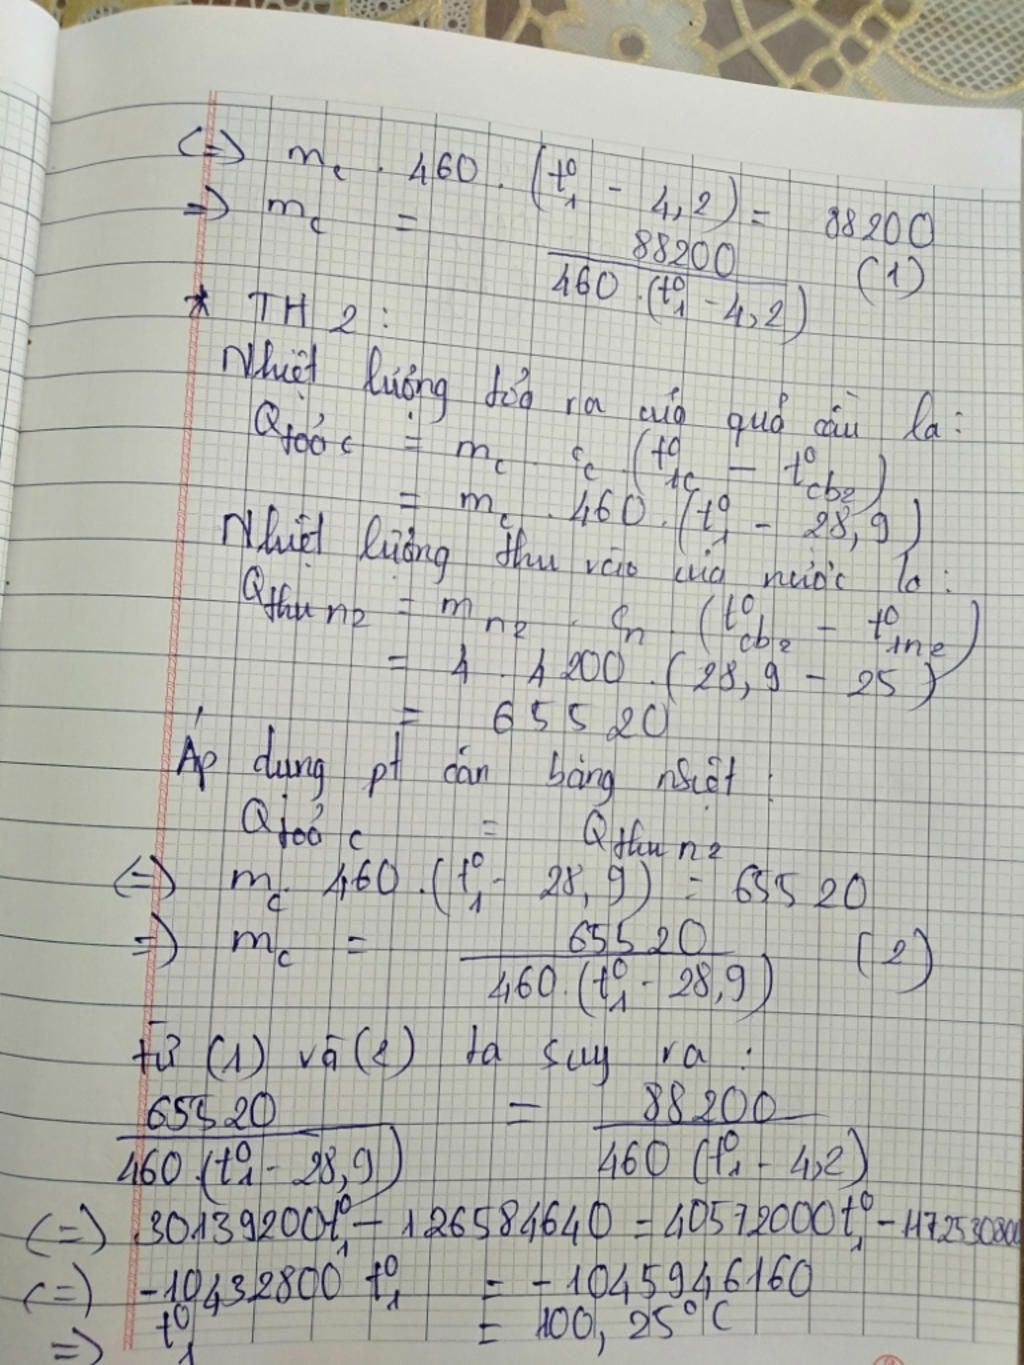 (=) m_c . 460 . (t°₁ - 4,2) = 88200
=) m_c = 88200 / 460 . (t°₁ - 4,2) (1)
* TH 2 :
Nhiệt lượng tỏa ra của quả cầu là :
Q_tỏa c = m_c . c_c (t°_1c - t°_cb2)
= m_c . 460 . (t°₁ - 28,9)
Nhiệt lượng thu vào của nước là :
Q_thu n2 = m_n2 . c_n (t°_cb2 - t°_1n2)
= 4 . 4200 . (28,9 - 25)
= 65520
Áp dụng pt cân bằng nhiệt :
Q_tỏa c = Q_thu n2
(=) m_c . 460 . (t°₁ - 28,9) = 65520
=) m_c = 65520 / 460 . (t°₁ - 28,9) (2)
từ (1) và (2) ta suy ra :
65520 / 460 . (t°₁ - 28,9) = 88200 / 460 (t°₁ - 4,2)
(=) 30139200t°₁ - 126584640 = 40572000t°₁ - 1172530800
(=) -10432800 t°₁ = -1045946160
=) t°₁ = 100,25°C